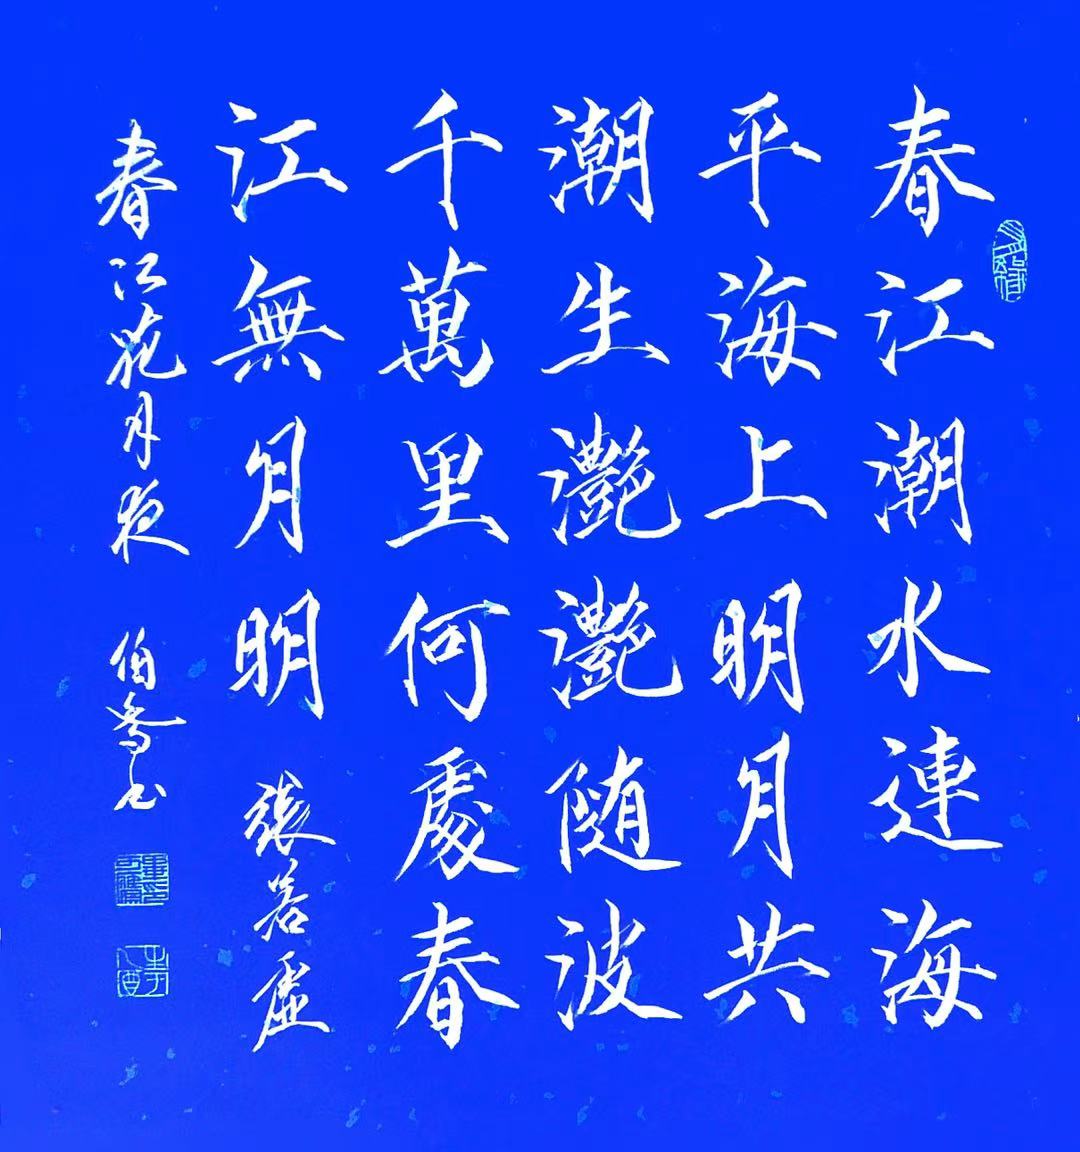 春江潮水連海
平海上明月共
潮生灔灔随波
千萬里何處春
江無月明
張若虛
春江花月夜
伯喬书